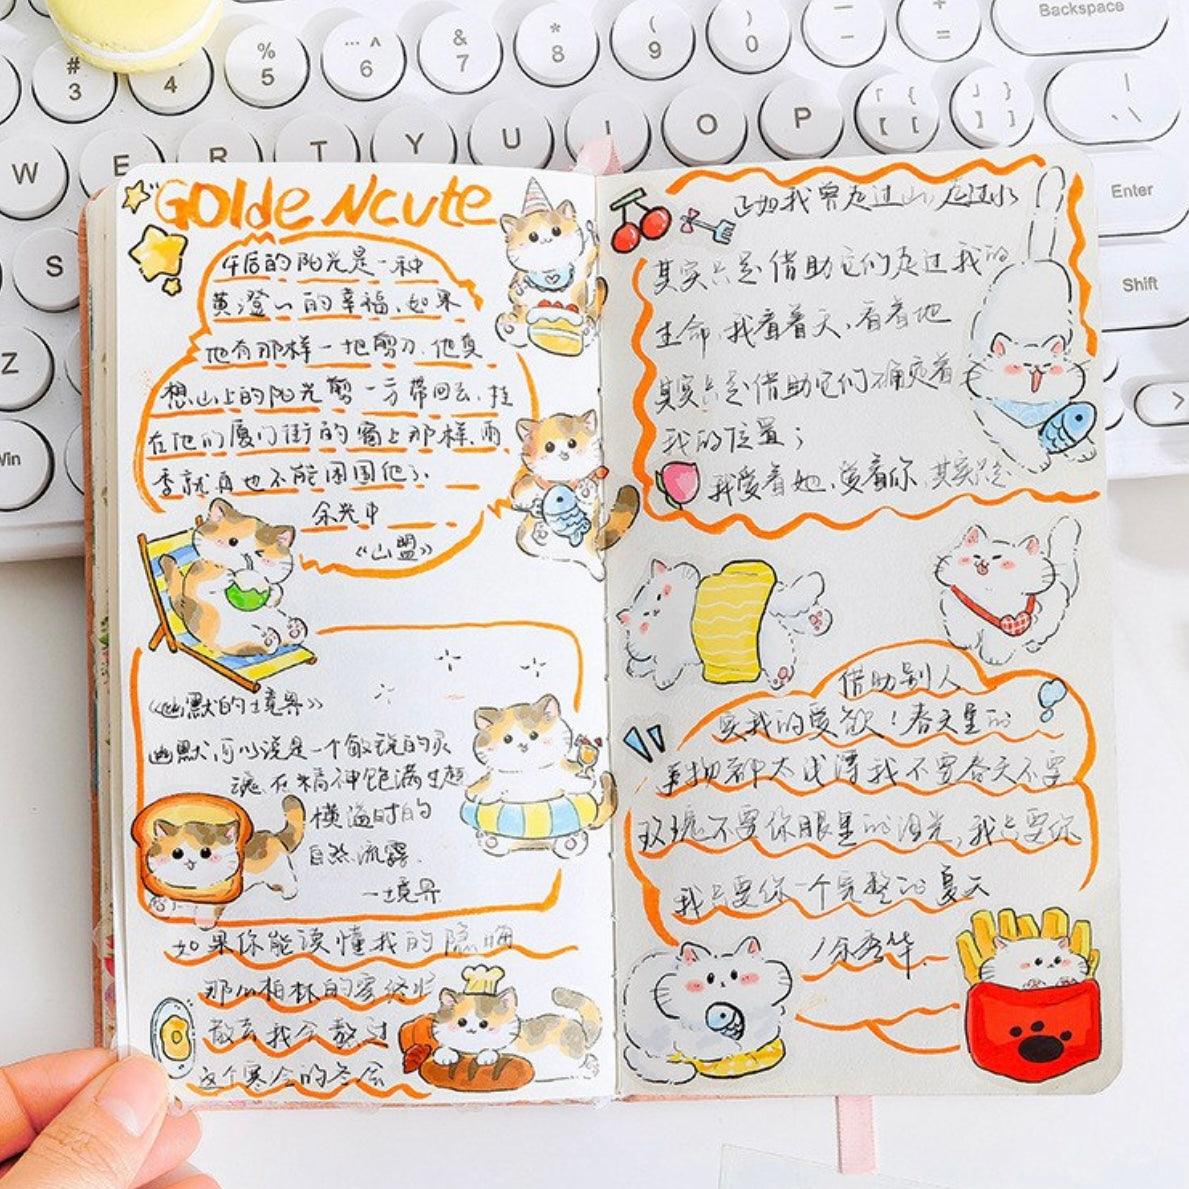 GOlde Ncute
午后的阳光是一种
黄澄澄的幸福、如果
他有那样一把剪刀、他真
想山上的阳光剪一方带回去、挂
在他们厦门街的窗上那样、雨
季就再也不能困围他了.
余光中
《山盟》
《幽默的境界》
幽默,可以说是一个敏锐的灵
魂在精神饱满生趣
横溢时的
自然流露.
一境界
如果你能读懂我的隐晦
散去我会熬过
这个寒冷的冬
正如我曾走过山,走过水
其实只是借助它们走过我的
生命,我看着天、看着地
其实只是借助它们确定着
我的位置;
我爱着她、爱着你、其实只是
借助别人
实我的爱欲!春天里的
事物都太浅薄我不要春天不要
玫瑰不要你眼里的泪光,我只要你
我只要你一个完整的夏天
/余秀华.
# 3
4
% 5
… ^ 6
& 7
* 8
( 9
) 0
— -
+ =
Backspace
W
E
R
T
Y
U
I
O
P
「 { 【 [
」 } 】 ]
| 、\
Enter
S
Shift
Z
>
Win